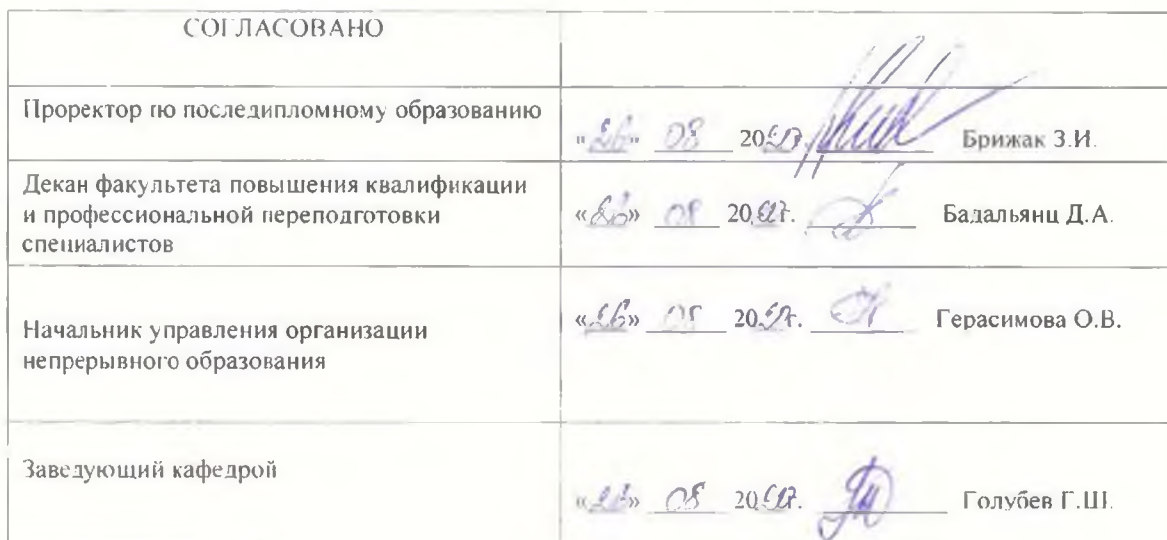 СОГЛАСОВАНО
Проректор по последипломному образованию
«26» 08 2017. Брижак З.И.
Декан факультета повышения квалификации
и профессиональной переподготовки
специалистов
«26» 08 2017. Бадальянц Д.А.
Начальник управления организации
непрерывного образования
«26» 08 2017. Герасимова О.В.
Заведующий кафедрой
«26» 08 2017. Голубев Г.Ш.